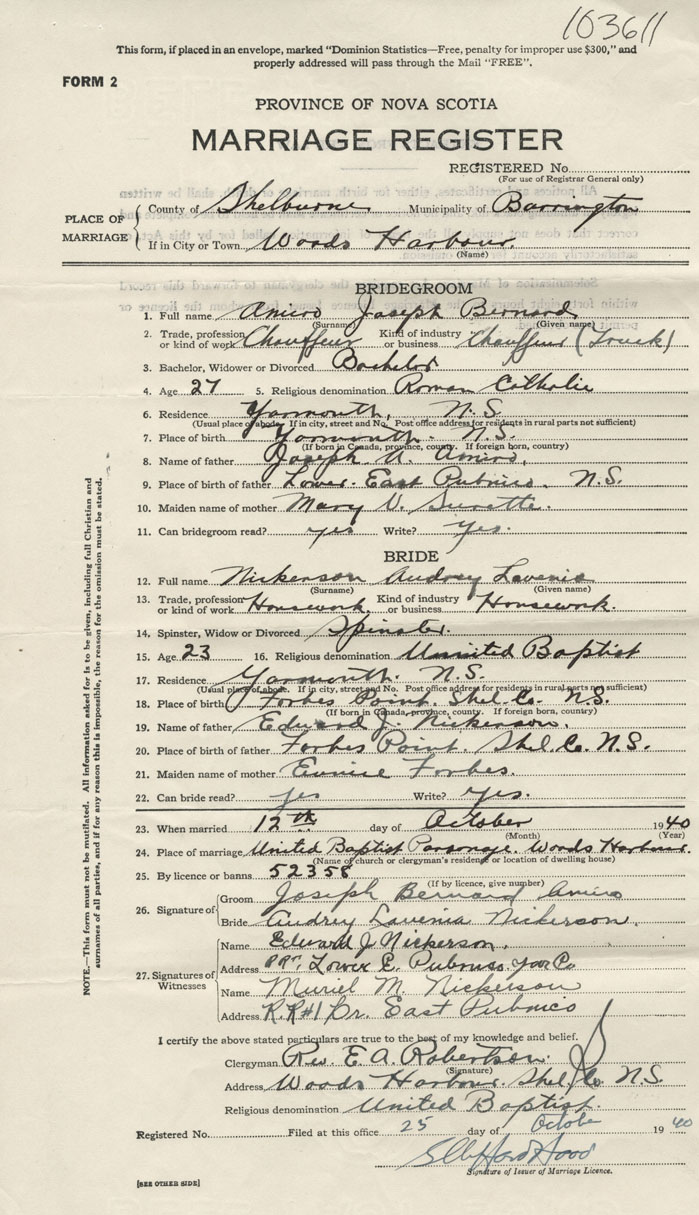 103611
This form, if placed in an envelope, marked "Dominion Statistics—Free, penalty for improper use $300," and
properly addressed will pass through the Mail "FREE".
FORM 2
PROVINCE OF NOVA SCOTIA
MARRIAGE REGISTER
REGISTERED No.
(For use of Registrar General only)
PLACE OF MARRIAGE
County of Shelburne Municipality of Barrington
If in City or Town Woods Harbour
(Name)
BRIDEGROOM
1. Full name Amiro Joseph Bernard
(Surname) (Given name)
2. Trade, profession or kind of work Chauffeur Kind of industry or business Chauffeur (Truck)
3. Bachelor, Widower or Divorced Bachelor
4. Age 27 5. Religious denomination Roman Catholic
6. Residence Yarmouth, N.S.
(Usual place of abode. If in city, street and No. Post office address for residents in rural parts not sufficient)
7. Place of birth Yarmouth. N.S.
(If born in Canada, province, county. If foreign born, country)
8. Name of father Joseph A. Amiro,
9. Place of birth of father Lower East Pubnico. N.S.
10. Maiden name of mother Mary V. Surette.
11. Can bridegroom read? yes Write? yes.
BRIDE
12. Full name Nickerson Audrey Lavenia
(Surname) (Given name)
13. Trade, profession or kind of work Housework Kind of industry or business Housework.
14. Spinster, Widow or Divorced Spinster.
15. Age 23 16. Religious denomination United Baptist
17. Residence Yarmouth. N.S.
(Usual place of abode. If in city, street and No. Post office address for residents in rural parts not sufficient)
18. Place of birth Forbes Point. Shel. Co. N.S.
(If born in Canada, province, county. If foreign born, country)
19. Name of father Edward J. Nickerson.
20. Place of birth of father Forbes Point. Shel. Co. N.S.
21. Maiden name of mother Eunice Forbes.
22. Can bride read? yes Write? yes.
23. When married 12th day of October 1940
(Month) (Year)
24. Place of marriage United Baptist Parsonage. Woods Harbour.
(Name of church or clergyman's residence or location of dwelling house)
25. By licence or banns 52358
(If by licence, give number)
26. Signature of
Groom Joseph Bernard Amiro
Bride Audrey Lavenia Nickerson.
27. Signatures of Witnesses
Name Edward J Nickerson.
Address Lower E. Pubnico Yar Co
Name Muriel M. Nickerson
Address R.R#1 Lr. East Pubnico
I certify the above stated particulars are true to the best of my knowledge and belief.
Clergyman Rev. E. A. Robertson.
(Signature)
Address Woods Harbour. Shel. Co. N.S.
Religious denomination United Baptist
Registered No. Filed at this office 25 day of October 1940
Signature of Issuer of Marriage Licence.
[SEE OTHER SIDE]
NOTE.—This form must not be mutilated. All information asked for is to be given, including full Christian and
surnames of all parties, and if for any reason this is impossible, the reason for the omission must be stated.